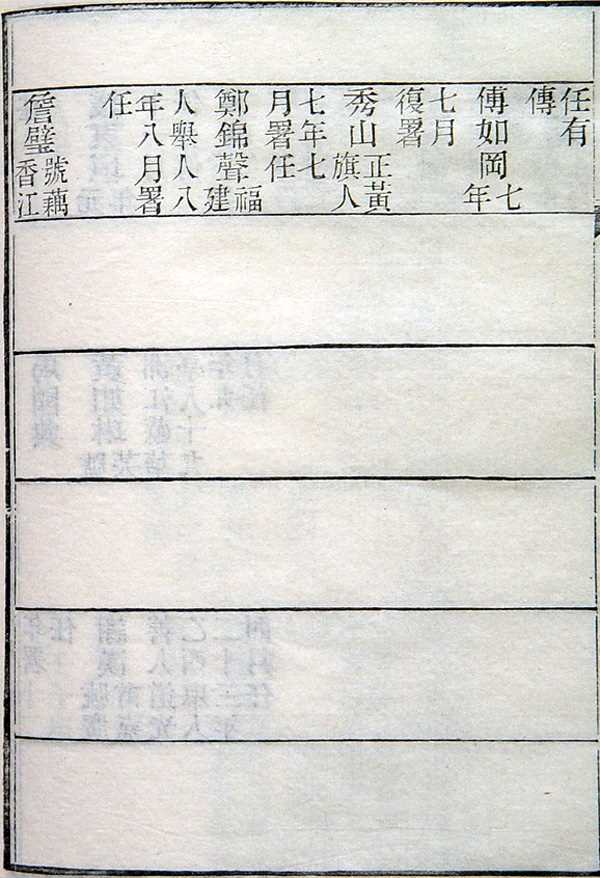 任有
傳
傅如岡七年
七月
復署
秀山正黃旗人
七年七
月署任
鄭錦聲福建
人舉人八
年八月署
任
詹璧號藕香江